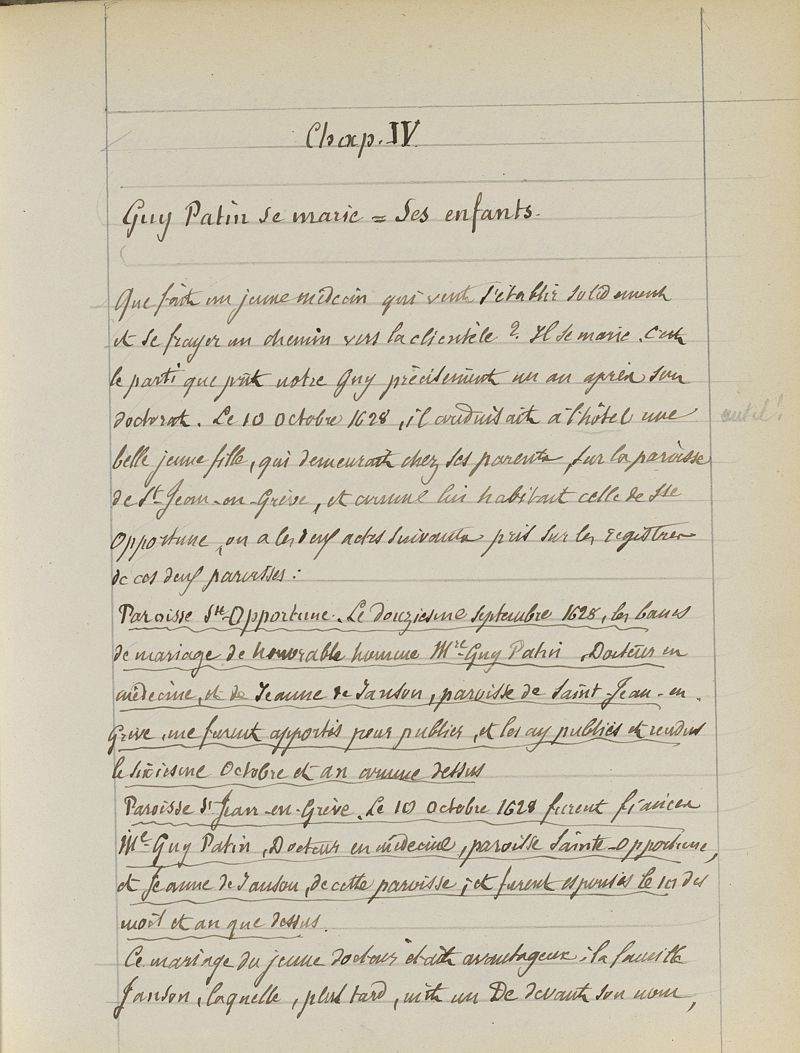 Chap. IV
Guy Patin se marie = Ses enfants.
Que fait un jeune médecin qui veut s'établir solidement
et se frayer un chemin vers la clientèle ? Il se marie. C'est
le parti que prit notre Guy précisément un an après son
doctorat. Le 10 Octobre 1628, il conduisait à l'hôtel une
belle jeune fille, qui demeurait chez ses parents, sur la paroisse
de St Jean-en-Grève, et comme lui habitait celle de Ste
Opportune, on a les deux actes suivants pris sur les registres
de ces deux paroisses :
Paroisse Ste-Opportune. Le douziesme septembre 1628, les bancs
de mariage de honorable homme Mre Guy Patin, Docteur en
médecine, et de Jeanne de Janson, paroisse de Saint-Jean-en-
Grève, me furent apportés pour publier, et les ay publiés et rendus
le sixiesme Octobre et an comme dessus
Paroisse St Jean-en-Grève. Le 10 Octobre 1628 furent fiancez
Me Guy Patin, Docteur en médecine, paroisse Sainte-Opportune,
et Jeanne de Janson, de cette paroisse ; et furent espousés le 10 des
mois et an que dessus.
Ce mariage du jeune docteur était avantageux ; la famille
Janson, laquelle, plus tard, mit un De devant son nom,